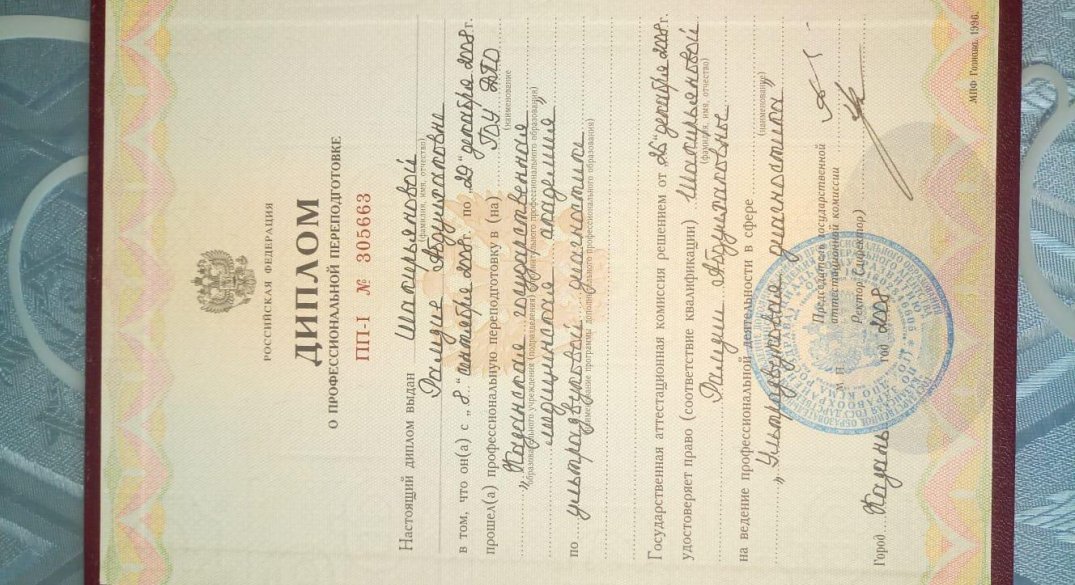 РОССИЙСКАЯ ФЕДЕРАЦИЯ
ДИПЛОМ
О ПРОФЕССИОНАЛЬНОЙ ПЕРЕПОДГОТОВКЕ
ПП-I № 305663
Настоящий диплом выдан Шапирьяновой
(фамилия, имя, отчество)
Рамзие
в том, что он(а) с „8“ сентября 2008 г. по „29“ декабря 2008 г.
прошел(а) профессиональную переподготовку в (на) ГОУ ДПО
(наименование
„Казанская государственная
образовательного учреждения (подразделения) дополнительного профессионального образования)
медицинская академия“
по ультразвуковой диагностике
(наименование программы дополнительного профессионального образования)
Государственная аттестационная комиссия решением от „26“ декабря 2008 г.
удостоверяет право (соответствие квалификации) Шапирьяновой
(фамилия, имя, отчество)
на ведение профессиональной деятельности в сфере
(наименование)
„Ультразвуковая диагностика“
Председатель государственной
аттестационной комиссии
М.П. Ректор (директор)
Город Казань год 2008
МПФ Гознака. 1996.